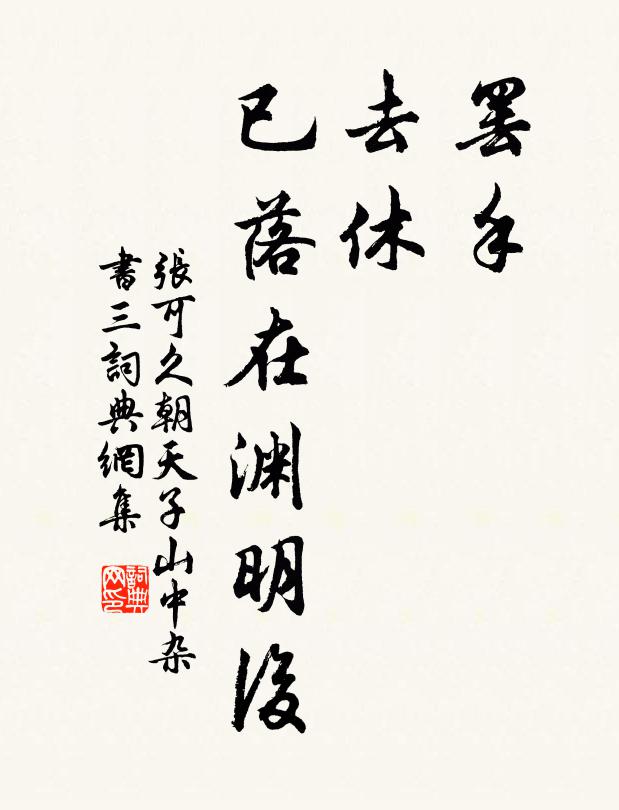 罢手
去休
已落在渊明後
張可久朝天子山中杂
書三詞典網集
詞典
网印